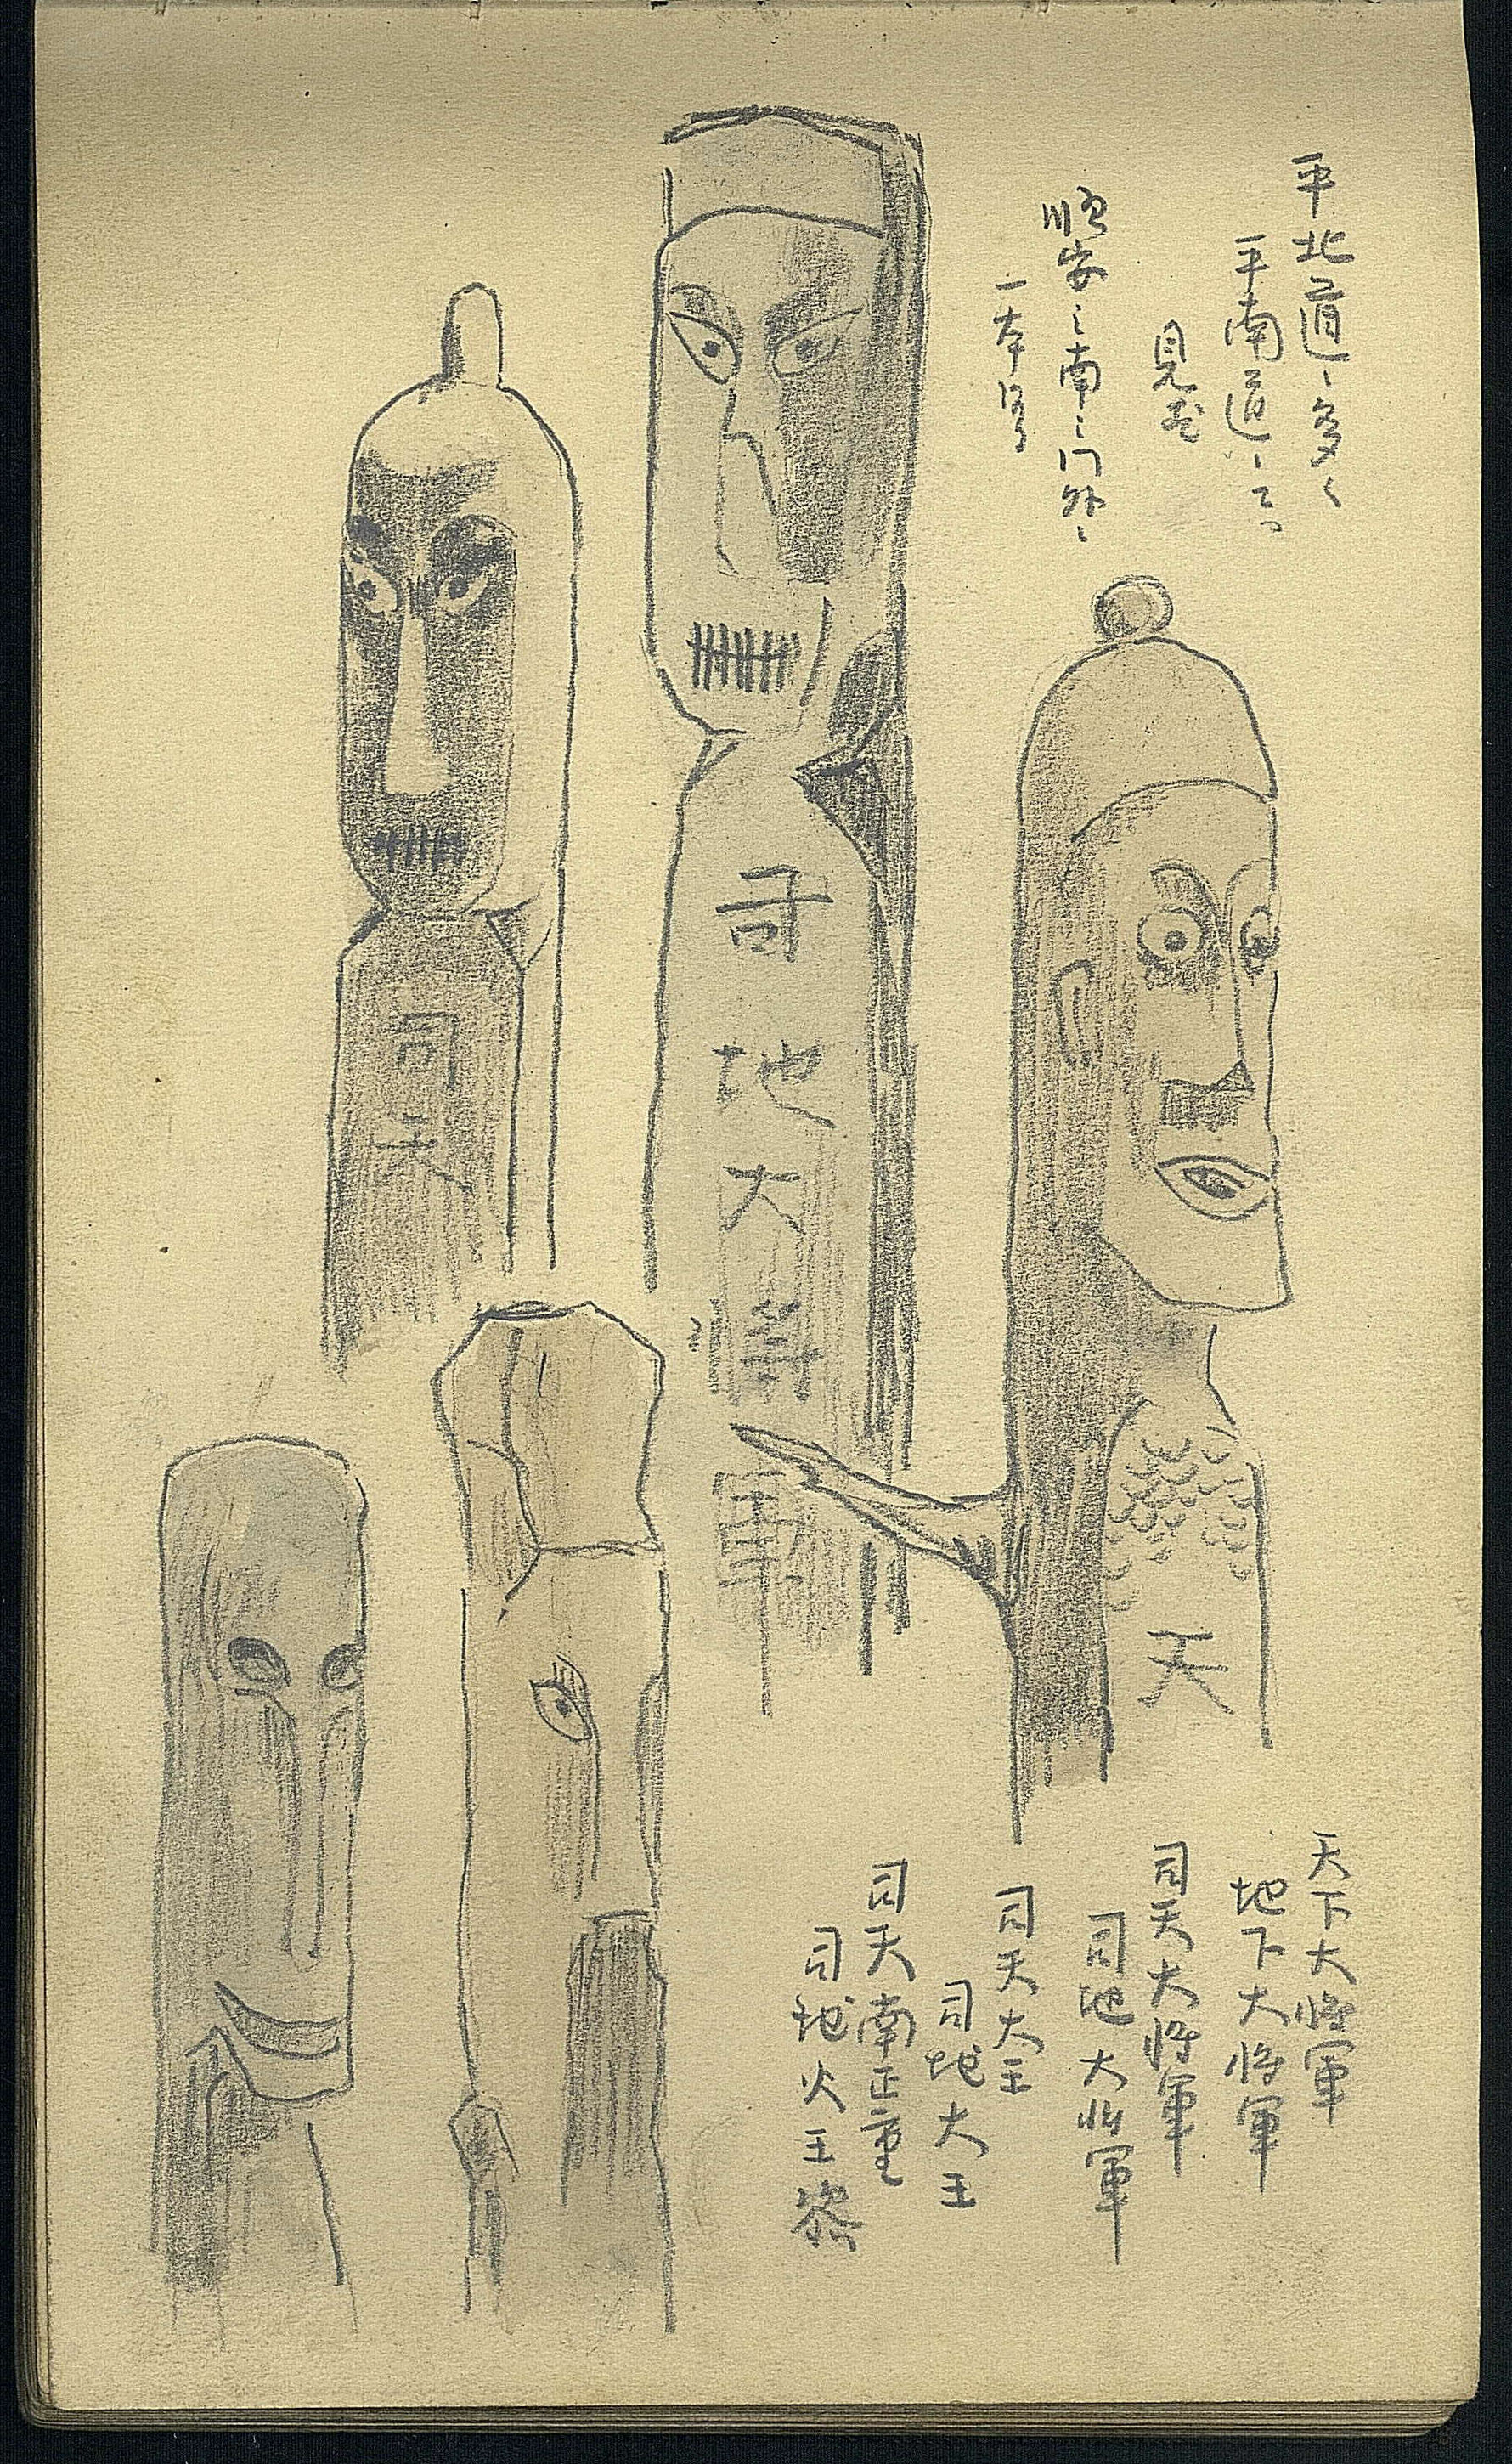 平北道ニ多く
平南道ニて
見ず
順安之南之门外ニ
一本
司地大将軍
司天
天
天下大将軍
地下大将軍
司天大将軍
司地大将軍
司天大王
司地大王
司天南正重
司地火王黎